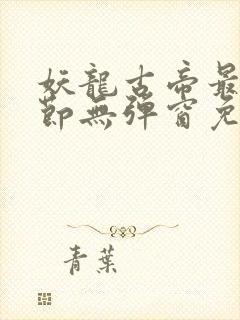 妖龍古帝最
節無彈窗免
青葉